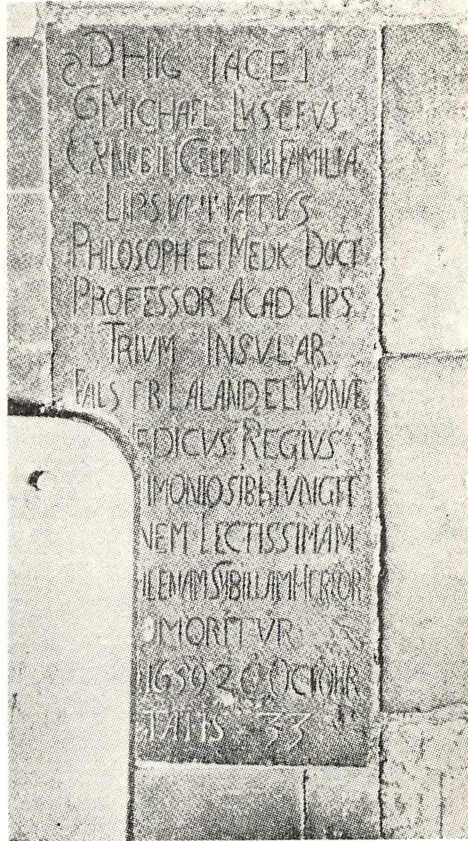 HIC IACET
MICHAEL LYSERVS
EX NOBILI FAMILIA
LIPS
PHILOSOPH. ET MEDIC DOCT
PROFESSOR ACAD LIPS.
TRIVM INSVLAR.
FALS FR LALAND, ET MØNÆ
EDICVS REGIVS
IMONIO SIBI IVNGIT
NEM LECTISSIMAM
ILENAM SYBILLAM
MORITVR
1659 20 OCTOBR
TATIS 33